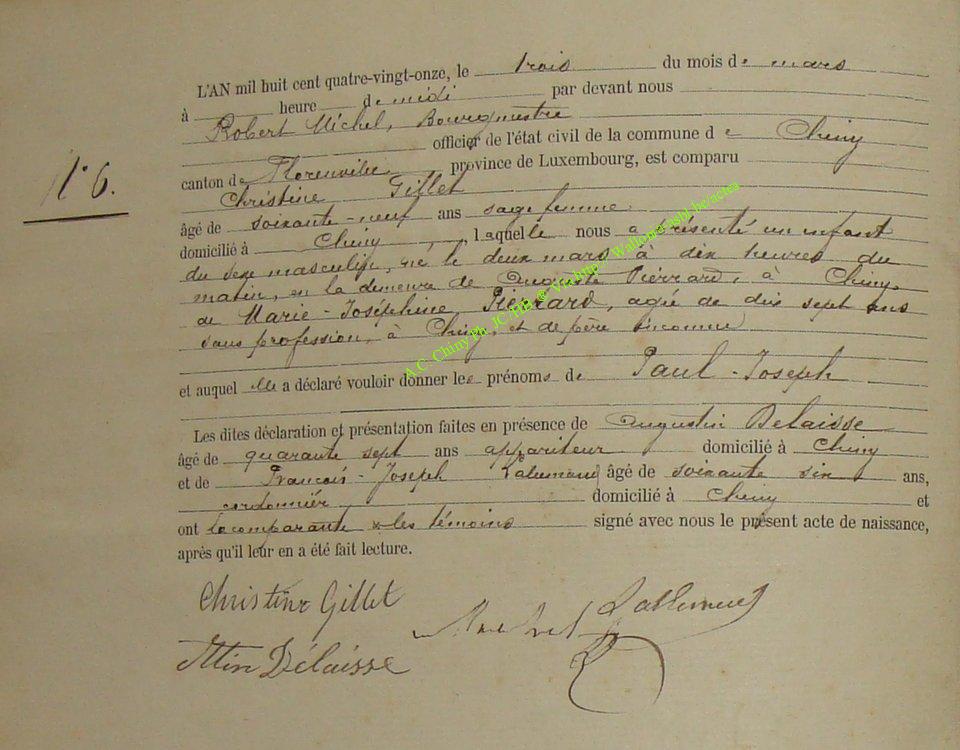 L'AN mil huit cent quatre-vingt-onze, le trois du mois de mars
à heure de midi par devant nous
Robert Michel, Bourgmestre
officier de l'état civil de la commune de Chiny
canton de Florenville province de Luxembourg, est comparu
N° 6.
Christine Gillet
âgé de soixante-neuf ans sage femme
domicilié à Chiny, laquelle nous a présenté un enfant
du sexe masculin, né le deux mars à dix heures du
matin, en la demeure de Auguste Pierrard, à Chiny,
de Marie-Joséphine Pierrard, agée de dix sept ans
sans profession, à Chiny, et de père inconnu
et auquel elle a déclaré vouloir donner les prénoms de Paul-Joseph
Les dites déclaration et présentation faites en présence de Augustin Delaisse
âgé de quarante sept ans appariteur domicilié à Chiny
et de François-Joseph Lallemand âgé de soixante six ans,
cordonnier domicilié à Chiny et
ont la comparante & les témoins signé avec nous le présent acte de naissance,
après qu'il leur en a été fait lecture.
Christine Gillet
Lallemand
Ttin Délaisse
A.C. Chiny Ph. JC. HB @ Visitus / Wallonie asbl.be/actes